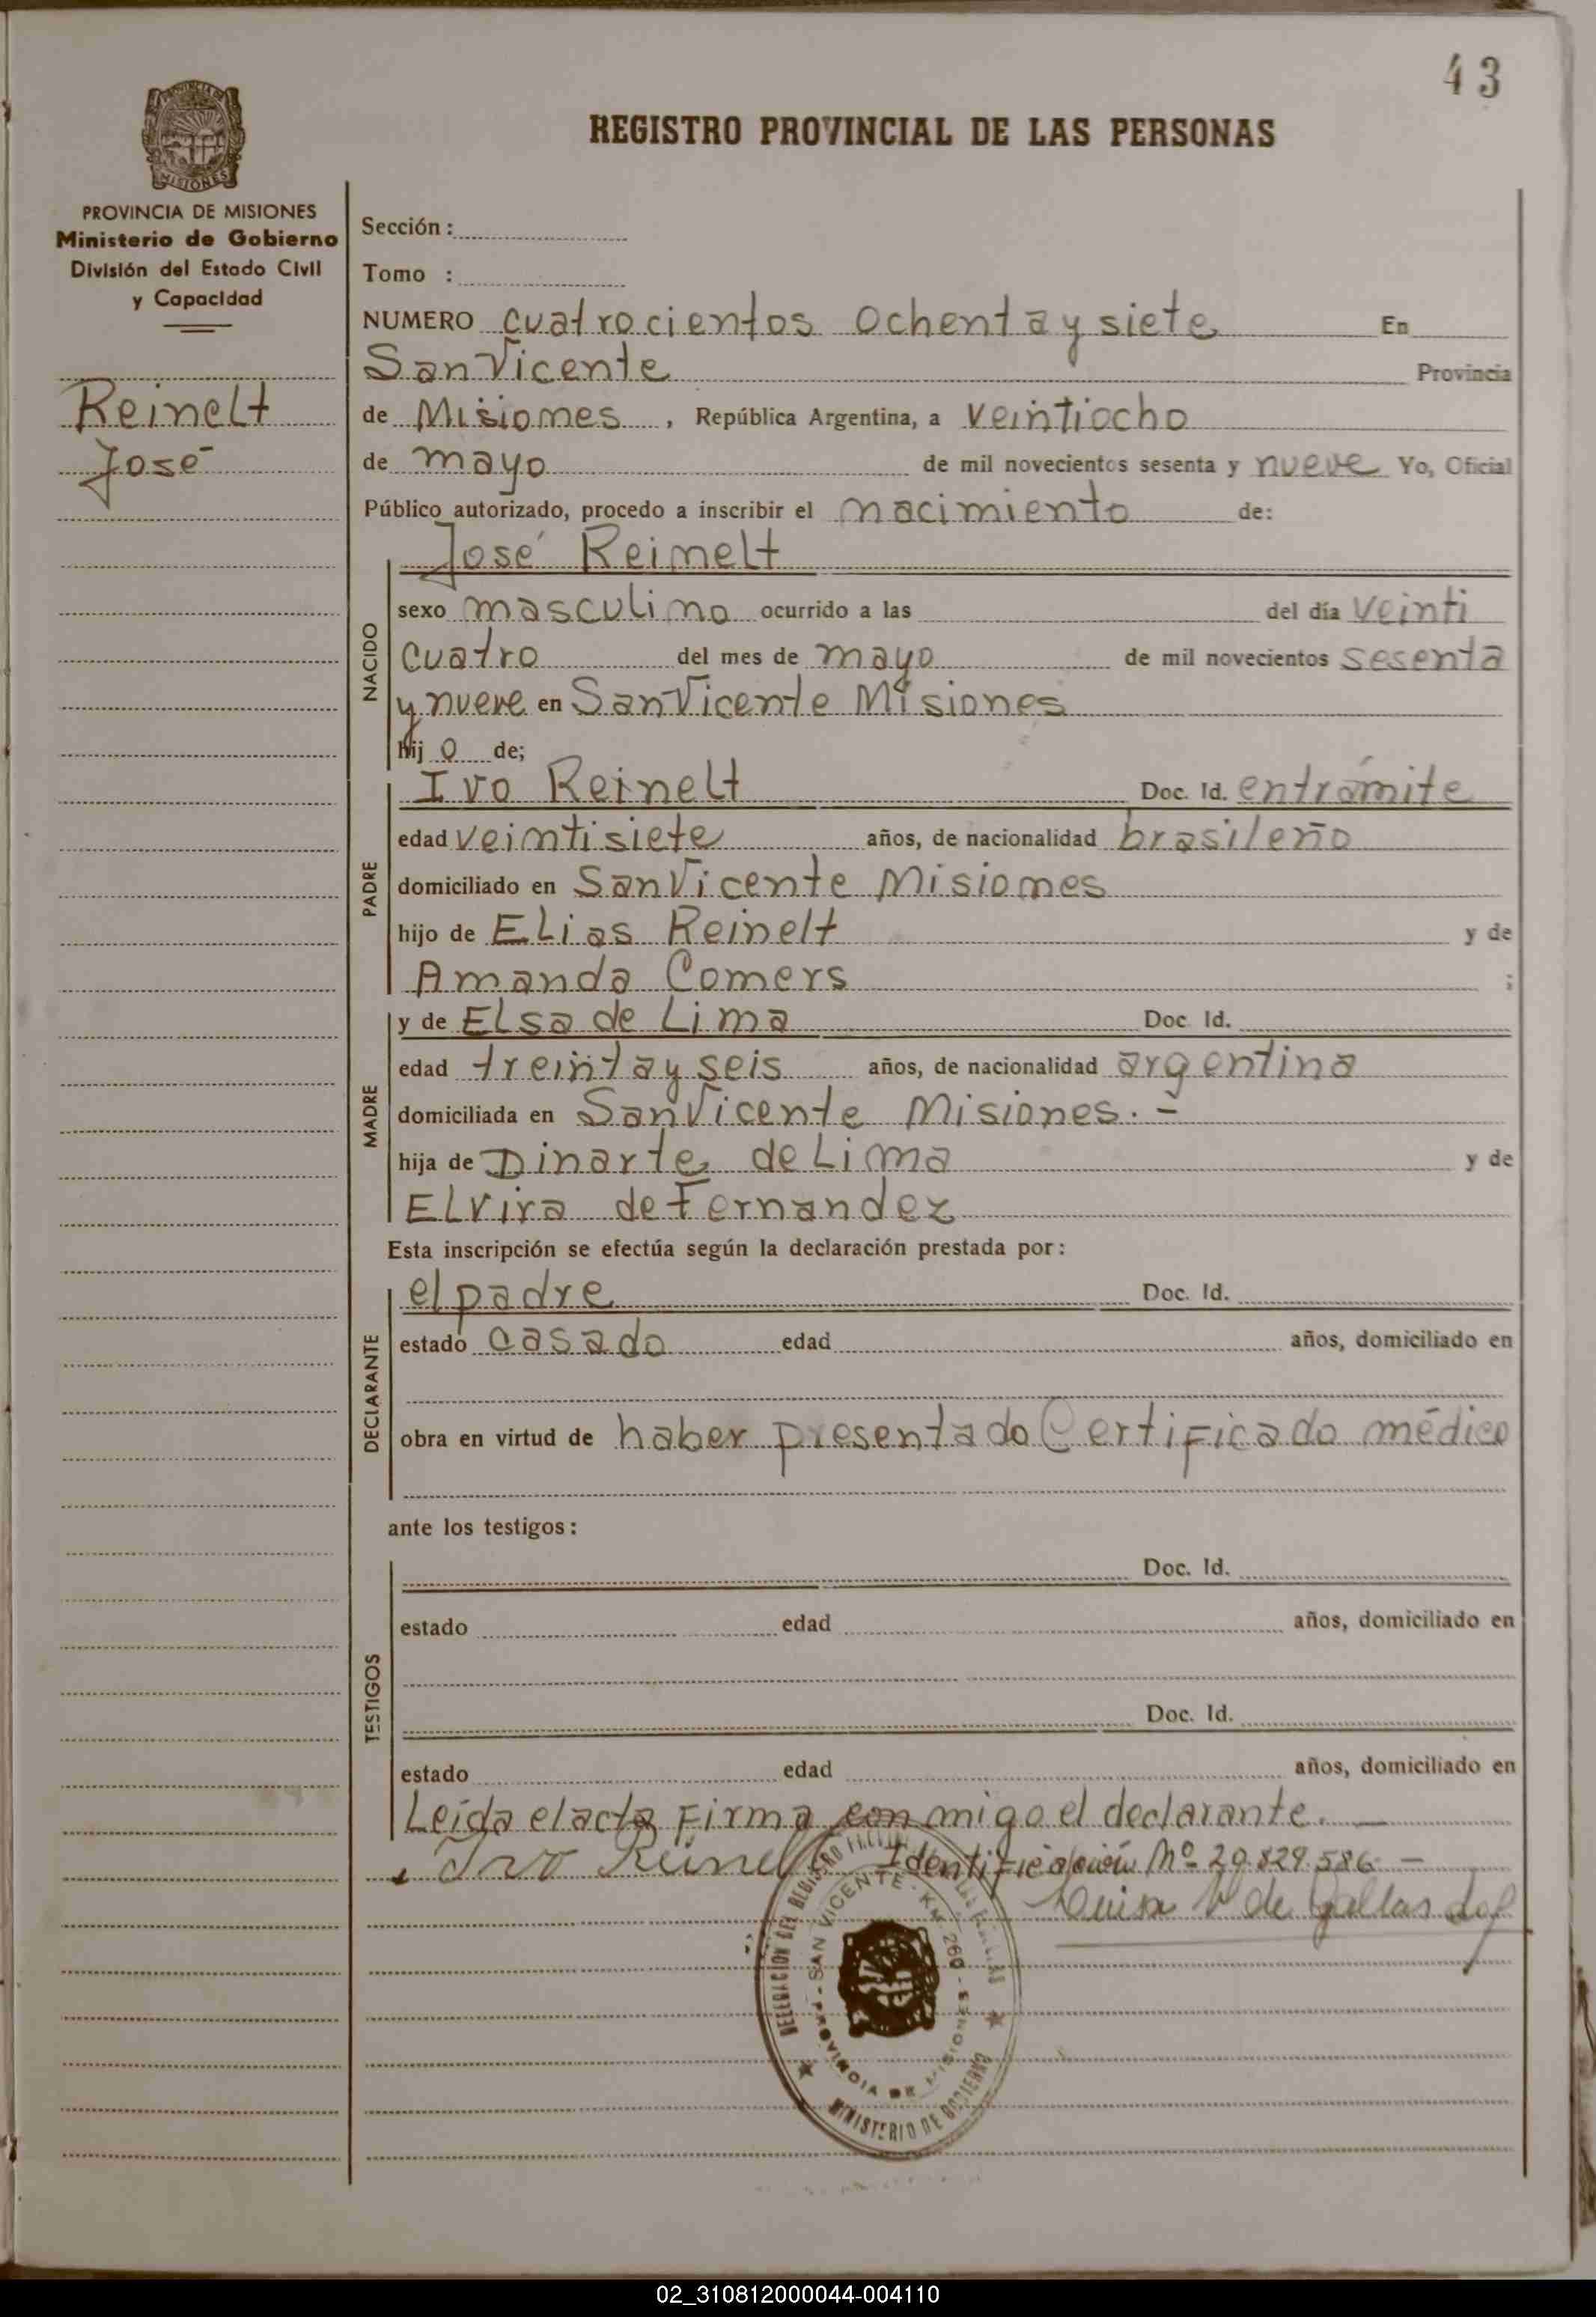 43
REGISTRO PROVINCIAL DE LAS PERSONAS
MISIONES
PROVINCIA DE MISIONES
Ministerio de Gobierno
División del Estado Civil
y Capacidad
Reinelt
José
Sección :
Tomo :
NUMERO cuatrocientos ochenta y siete En
San Vicente Provincia
de Misiones , República Argentina, a veintiocho
de mayo de mil novecientos sesenta y nueve Yo, Oficial
Público autorizado, procedo a inscribir el nacimiento de:
NACIDO
José Reinelt
sexo masculino ocurrido a las del día veinti
cuatro del mes de mayo de mil novecientos sesenta
y nueve en San Vicente Misiones
hij o de;
PADRE
Ivo Reinelt Doc. Id. en trámite
edad veintisiete años, de nacionalidad brasileño
domiciliado en San Vicente Misiones
hijo de Elias Reinelt y de
Amanda Comers ;
MADRE
y de Elsa de Lima Doc. Id.
edad treinta y seis años, de nacionalidad argentina
domiciliada en San Vicente Misiones. -
hija de Dinarte de Lima y de
Elvira de Fernandez
Esta inscripción se efectúa según la declaración prestada por :
DECLARANTE
el padre Doc. Id.
estado casado edad años, domiciliado en
obra en virtud de haber presentado Certificado médico
ante los testigos :
TESTIGOS
Doc. Id.
estado edad años, domiciliado en
Doc. Id.
estado edad años, domiciliado en
Leída el acta Firma conmigo el declarante. —
Ivo Reinelt Identificación Nº 20.829.586 —
de Gallardo
DELEGACION DEL REGISTRO
SAN VICENTE - KM. 260 -
PROVINCIA DE MISIONES
MINISTERIO DE GOBIERNO
02_310812000044-004110